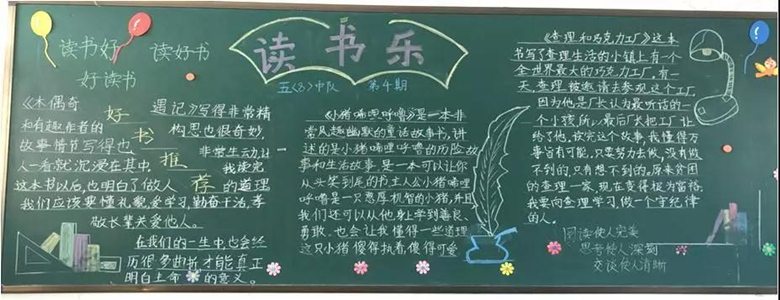 读书好
读好书
好读书
读书乐
五〈3〉中队 第4期
好书推荐
《木偶奇遇记》写得非常精
和有趣,作者的构思也很奇妙,
故事情节写得也非常生动,让
人一看就沉浸在其中。我读完
这本书以后,也明白了做人的道理
我们应该要懂礼貌,爱学习,勤奋干活,孝
敬长辈关爱他人。
在我们的一生中,也会经
历很多曲折才能真正
明白生命的意义。
《小猪唏哩呼噜》是一本非
常风趣幽默的童话故事书,讲
述的是小猪唏哩呼噜的历险故
事和生活故事,是一本可以让你
从头笑到尾的书主人公小猪唏哩
呼噜是一只憨厚机智的小猪,并且
我们还可以从他身上学到善良、
勇敢,也会让我懂得一些道理
这只小猪傻得执着,傻得可爱
《查理和巧克力工厂》这本
书写了查理生活的小镇上有一个
全世界最大的巧克力工厂,有一
天,查理被邀请去参观这个工厂,
因为他是厂长认为最听话的一
个小孩,所以最后厂长把工厂让
给了他。读完这个故事,我懂得万
事皆有可能,只要努力去做,没有做
不到的,只有想不到的。原来贫困
的查理一家,现在变得极为富裕,
我要向查理学习,做一个守纪律
的人。
阅读使人完美
思考使人深刻
交谈使人清晰